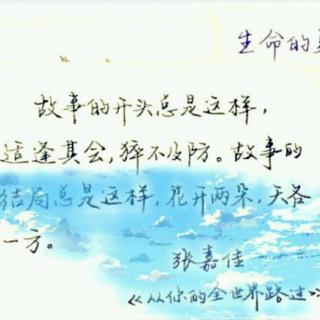 生命的
故事的开头总是这样，
适逢其会，猝不及防。故事的
结局总是这样，花开两朵，天各
一方。
张嘉佳
《从你的全世界路过》